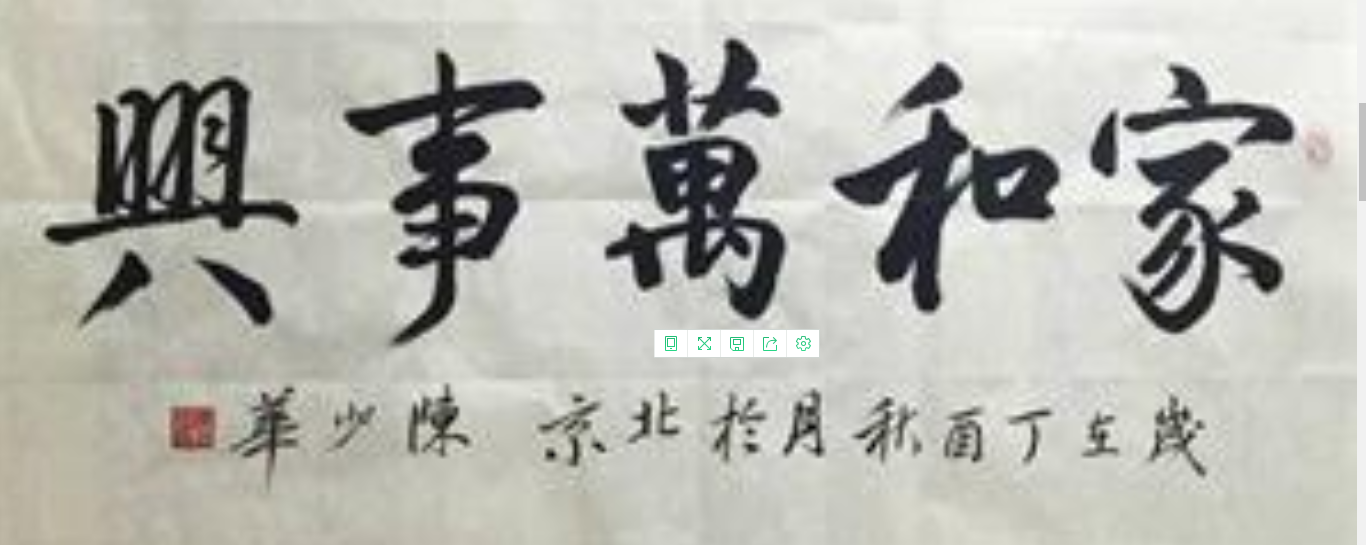 家和萬事興
歲在丁酉秋月於北京 陳少華